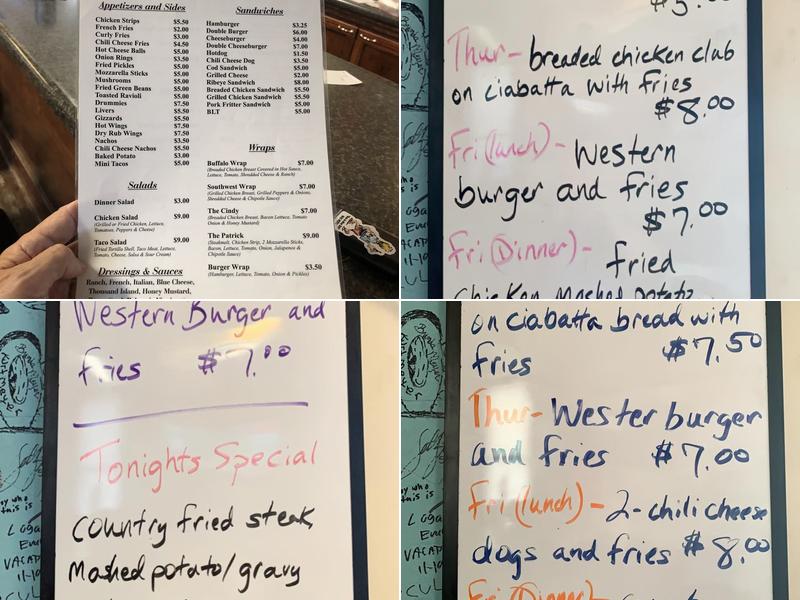 Appetizers and Sides
Chicken Strips $5.50
French Fries $2.00
Curly Fries $3.00
Chili Cheese Fries $4.50
Hot Cheese Balls $5.00
Onion Rings $3.50
Fried Pickles $5.00
Mozzarella Sticks $5.00
Mushrooms $5.00
Fried Green Beans $5.00
Toasted Ravioli $5.00
Drummies $7.50
Livers $5.50
Gizzards $5.50
Hot Wings $7.50
Dry Rub Wings $7.50
Nachos $3.50
Chili Cheese Nachos $5.50
Baked Potato $3.00
Mini Tacos $5.00
Salads
Dinner Salad $3.00
Chicken Salad $9.00
(Grilled or Fried Chicken, Lettuce,
Tomatoes, Peppers & Cheese)
Taco Salad $9.00
(Fried Tortilla Shell, Taco Meat, Lettuce,
Tomato, Cheese, Salsa & Sour Cream)
Dressings & Sauces
Ranch, French, Italian, Blue Cheese,
Thousand Island, Honey Mustard,
Sandwiches
Hamburger $3.25
Double Burger $6.00
Cheeseburger $4.00
Double Cheeseburger $7.00
Hotdog $1.50
Chili Cheese Dog $3.50
Cod Sandwich $5.00
Grilled Cheese $2.00
Ribeye Sandwich $8.00
Breaded Chicken Sandwich $5.50
Grilled Chicken Sandwich $5.50
Pork Fritter Sandwich $5.00
BLT $5.00
Wraps
Buffalo Wrap $7.00
(Breaded Chicken Breast Covered in Hot Sauce,
Lettuce, Tomato, Shredded Cheese & Ranch)
Southwest Wrap $7.00
(Grilled Chicken Breast, Grilled Peppers & Onions,
Shredded Cheese & Chipotle Sauce)
The Cindy $7.00
(Breaded Chicken Breast, Bacon Lettuce, Tomato
Onion & Honey Mustard)
The Patrick $9.00
(Steakmall, Chicken Strip, 2 Mozzarella Sticks,
Bacon, Lettuce, Tomato, Onion, Jalapenos &
Chipotle Sauce)
Burger Wrap $3.50
(Hamburger, Lettuce, Tomato, Onion & Pickles)
Thur- breaded chicken club
on ciabatta with fries
$8.00
Fri (lunch) - Western
burger and fries
$7.00
Fri (Dinner) - fried
chicken, mashed potato
Western Burger and
fries $7.00
Tonights Special
Country fried steak,
Mashed potato/gravy
on ciabatta bread with
fries $7.50
Thur- Wester burger
and fries $7.00
Fri (lunch) - 2-chili cheese
dogs and fries $8.00
Fri (Dinner)